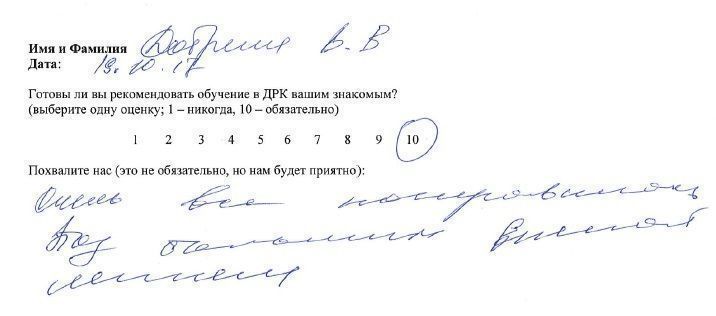 Имя и Фамилия Добрения В.В
Дата: 19.10.17
Готовы ли вы рекомендовать обучение в ДРК вашим знакомым?
(выберите одну оценку; 1 – никогда, 10 – обязательно)
1 2 3 4 5 6 7 8 9 10
Похвалите нас (это не обязательно, но нам будет приятно):
Очень все понравилось
Под большим впечат
лением